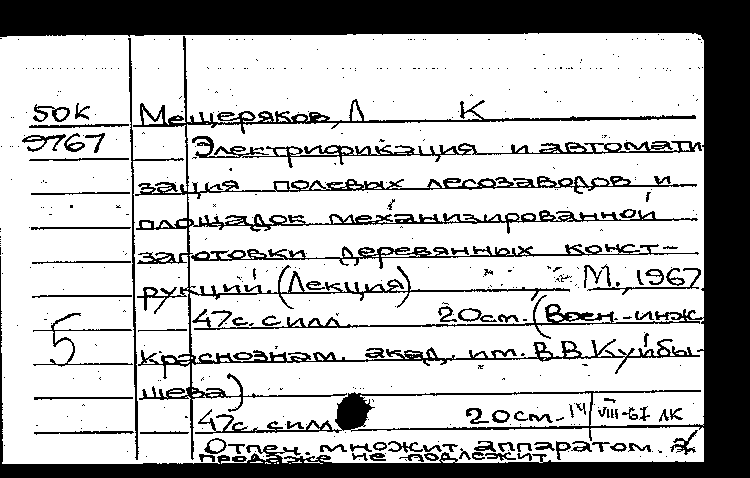 50К Мещеряков, Л К
9767 Электрификация и автомати
зация полевых лесозаводов и
площадок механизированной
заготовки деревянных конст-
рукций. (Лекция) М., 1967
47с. с илл. 20см. (Воен.-инж
5 краснознам. акад. им. В.В. Куйбы-
шева).
47с. с илл. 20см. 14/VIII-67 ЛК
Отпеч. множит. аппаратом. В
продаже не подлежит.